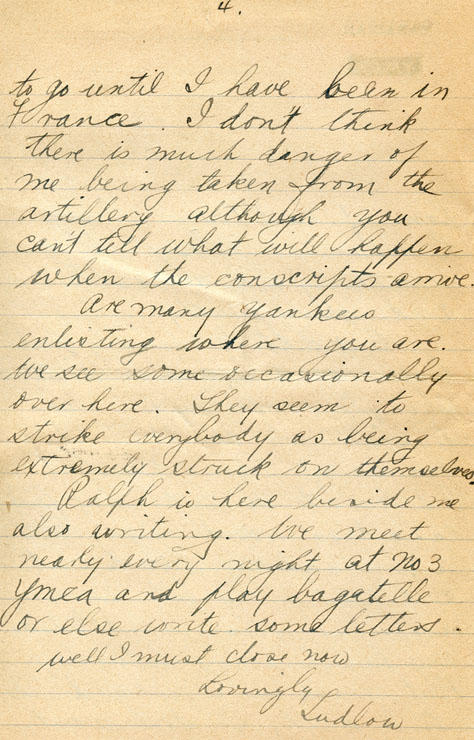 4.
to go until I have been in
France. I don't think
there is much danger of
me being taken from the
artillery although you
can't tell what will happen
when the conscripts arrive.
Are many Yankees
enlisting where you are.
We see some occasionally
over here. They seem to
strike everybody as being
extremely struck on themselves.
Ralph is here beside me
also writing. We meet
nearly every night at No 3
Ymca and play bagatelle
or else write some letters.
well I must close now
Lovingly
Ludlow